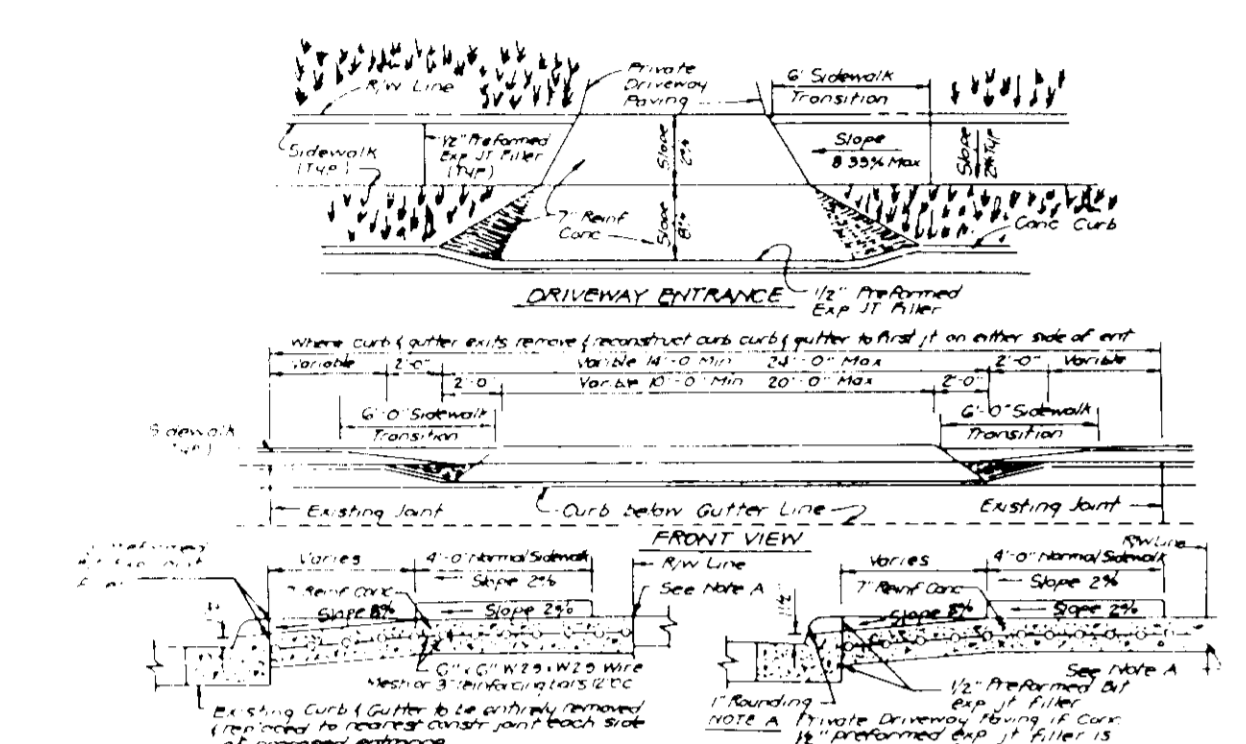 R/W Line
Private
Driveway
Paving
6' Sidewalk
Transition
Sidewalk
(Typ)
1/2" Preformed
Exp JT Filler
(Typ)
Slope
2%
Slope
8.33% Max
Slope
2% Typ
7" Reinf
Conc
Slope
8%
Conc Curb
DRIVEWAY ENTRANCE
1/2" Preformed
Exp JT Filler
Where curb & gutter exits remove & reconstruct curb curb & gutter to first jt on either side of ent
Variable 2'-0" Varible 14'-0" Min 24'-0" Max 2'-0" Varible
2'-0" Varible 10'-0" Min 20'-0" Max 2'-0"
6'-0" Sidewalk
Transition
6'-0" Sidewalk
Transition
Sidewalk
Existing Joint
Curb below Gutter Line
Existing Joint
FRONT VIEW
Preformed
Varies
4'-0" Normal Sidewalk
Slope 2%
R/W Line
7" Reinf Conc
See Note A
Slope 8%
Slope 2%
6" x 6" W2.9 x W2.9 Wire
Mesh or 3" reinforcing bars 12" OC
Existing Curb & Gutter to be entirely removed
& replaced to nearest constr joint each side
of proposed entrance
R/W Line
Varies
4'-0" Normal Sidewalk
Slope 2%
7" Reinf Conc
1 1/2"
Slope 8%
Slope 2%
See Note A
1/2" Preformed Bit
exp jt filler
1" Rounding
NOTE A Private Driveway Paving if Conc
1/2" preformed exp jt filler is